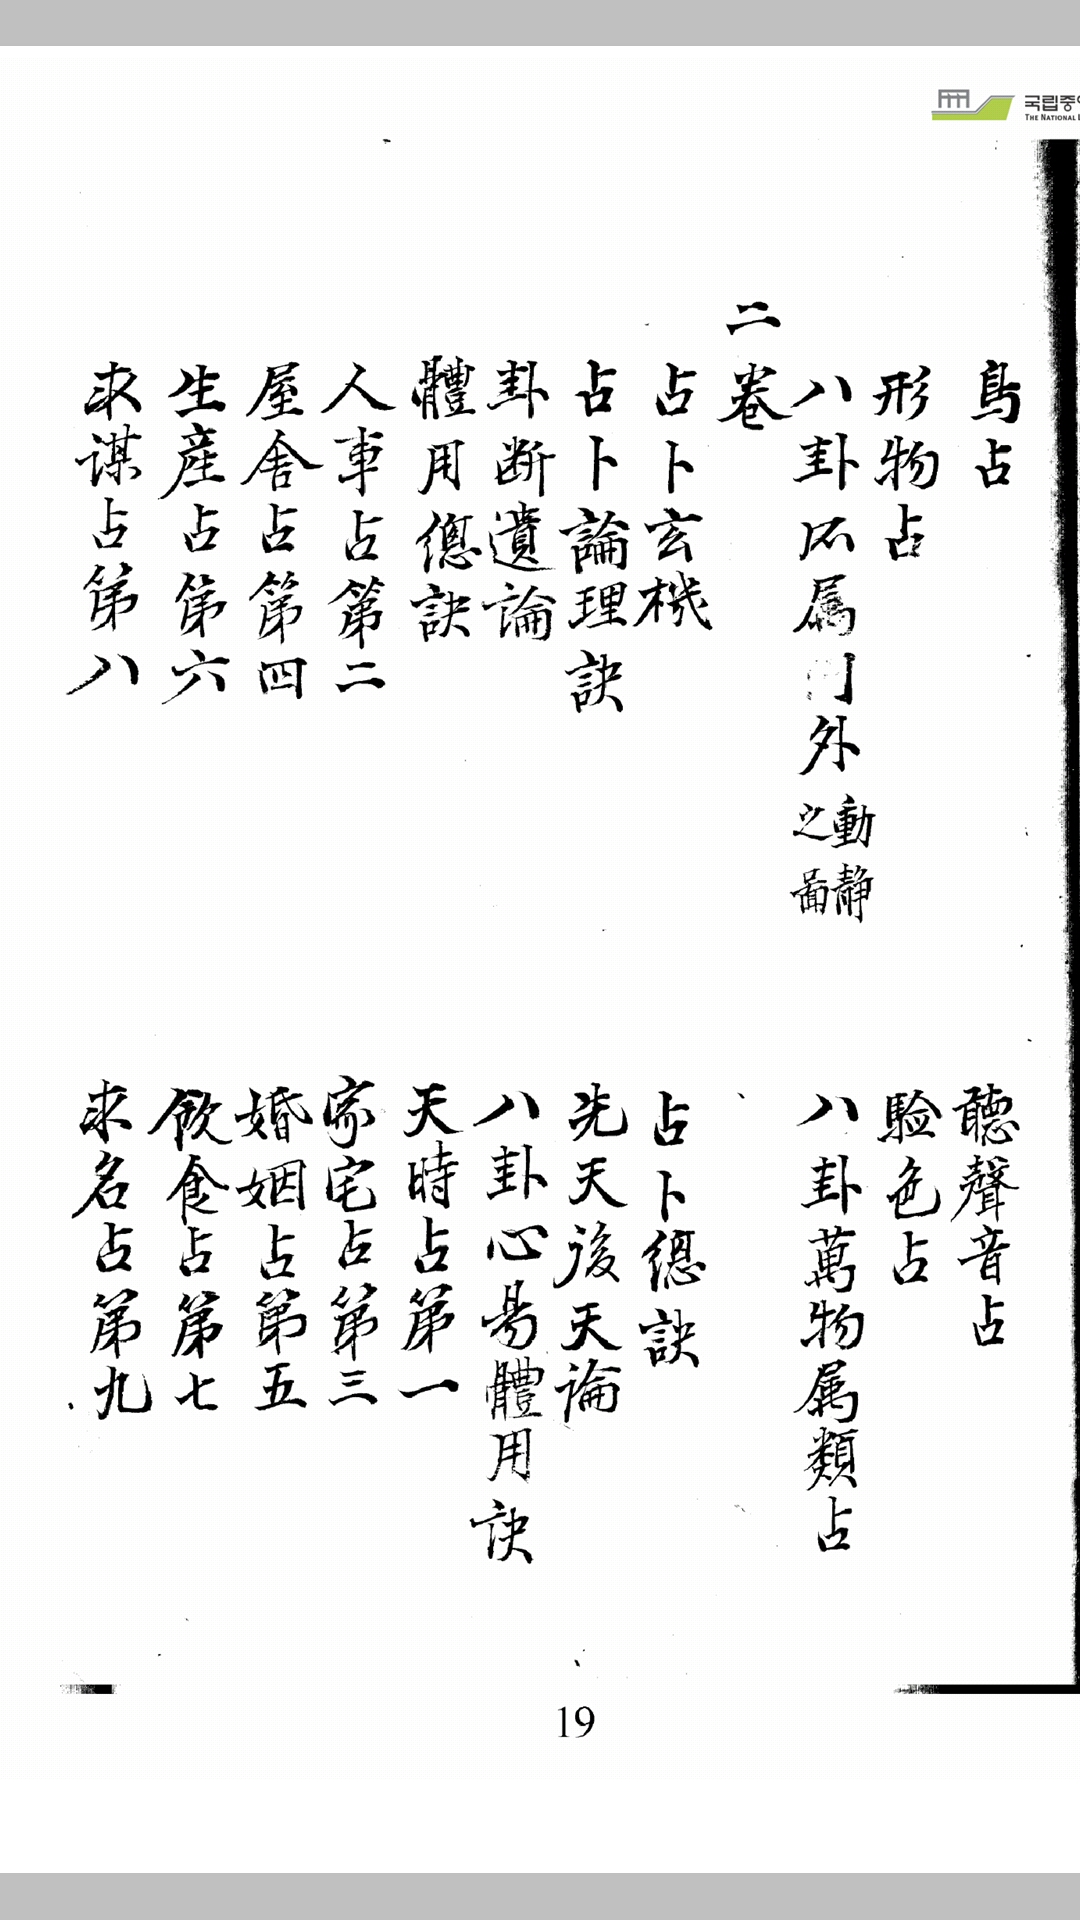 국립중
THE NATIONAL
鳥占
聽聲音占
形物占
驗色占
八卦所属外動静之啚
八卦萬物属類占
二卷
占卜玄機
占卜緫訣
占卜論理訣
先天後天論
卦断遺論
八卦心易體用訣
體用緫訣
天時占第一
人事占第二
家宅占第三
屋舍占第四
婚姻占第五
生産占第六
飲食占第七
求謀占第八
求名占第九
19